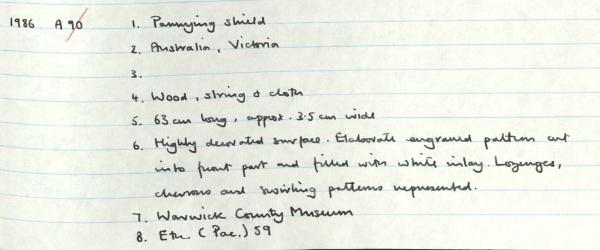 1986 A 90 1. Parrying shield
2. Australia, Victoria
3.
4. Wood, string & cloth
5. 63 cm long, approx. 3.5 cm wide
6. Highly decorated surface. Elaborate engraved pattern cut
into front part and filled with white inlay. Lozenges,
chevrons and swirling patterns represented.
7. Warwick County Museum
8. Eth. (Pac.) 59